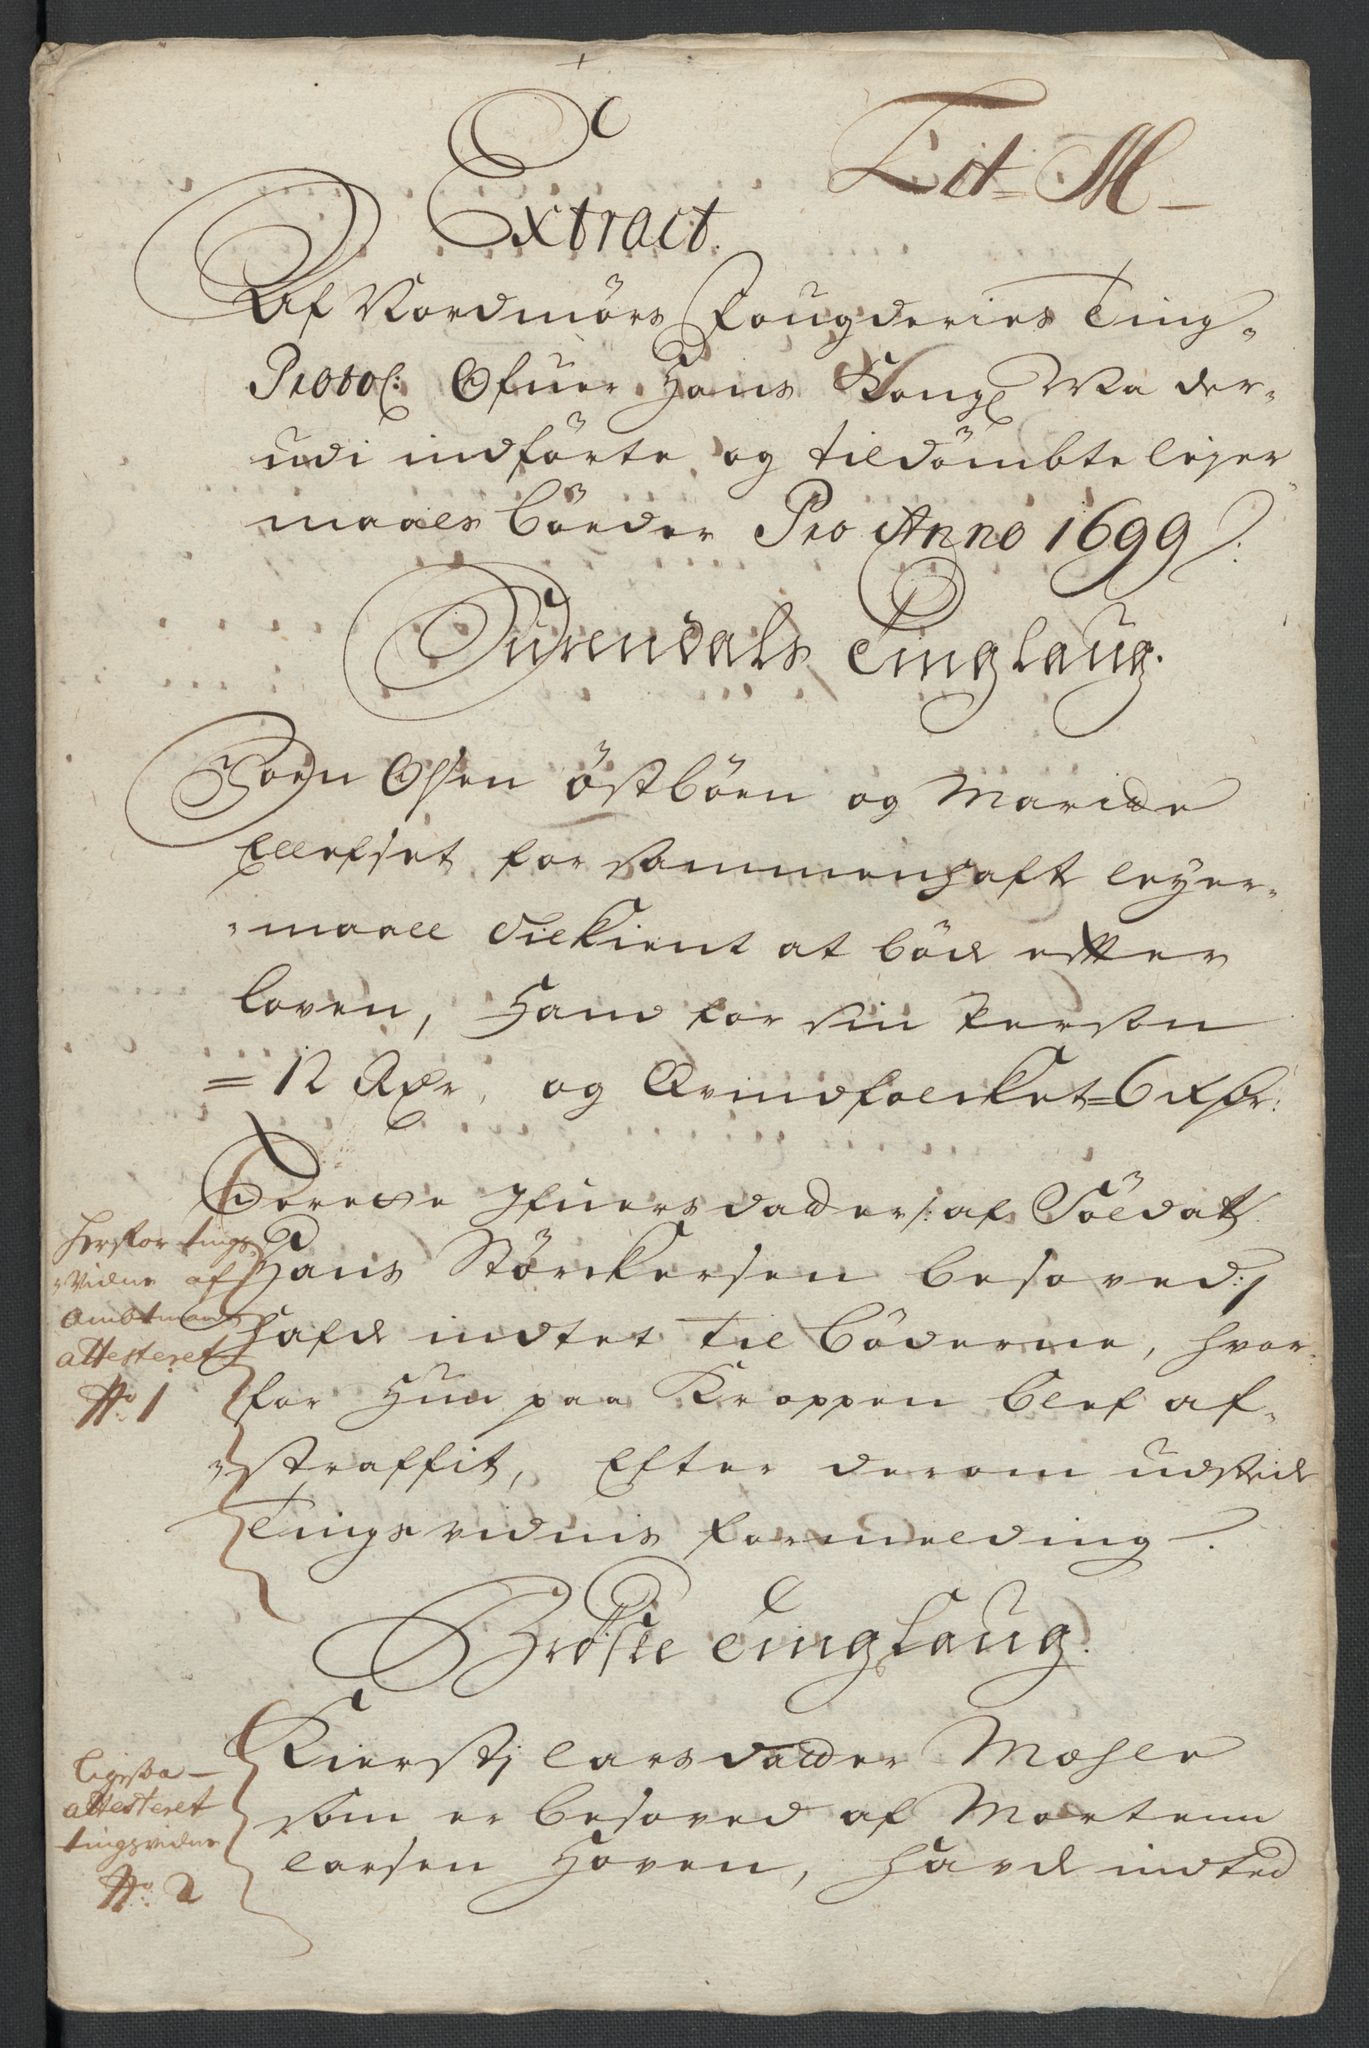 Lit M
Extract
Af Nordmörs Fougderies Ting
Protocl: Ofuer Hans Kongl Ma der
udi indförte og tildömbte lejer
maals böeder Pro Anno 1699
Surendals Tinglaug.
Joen Olsen Östböen og Maride
Ellefset for sammenhaft leyer
maall tilkient at böde efter
loven, Hand for sin Person
= 12 Rdr, og Qvindfolcket = 6 Rdr:
Dorette Ifuersdatter /: af Soldat
Hans Störckersen besoved :/
hafde indtet til böderne, hvor
for Hun paa Kroppen blef af
straffit, Efter derom udstede
Tingsvidnis formelding.
herfor tings
vidne af
Ambtmand
attesteret
No 1
Tinglaug.
Kiersti Larsdatter Moshle
som er besoved af Mortenn
Larsen Hoven, havde indted
Ligesaa
attesteret
tingsvidne
No. 2